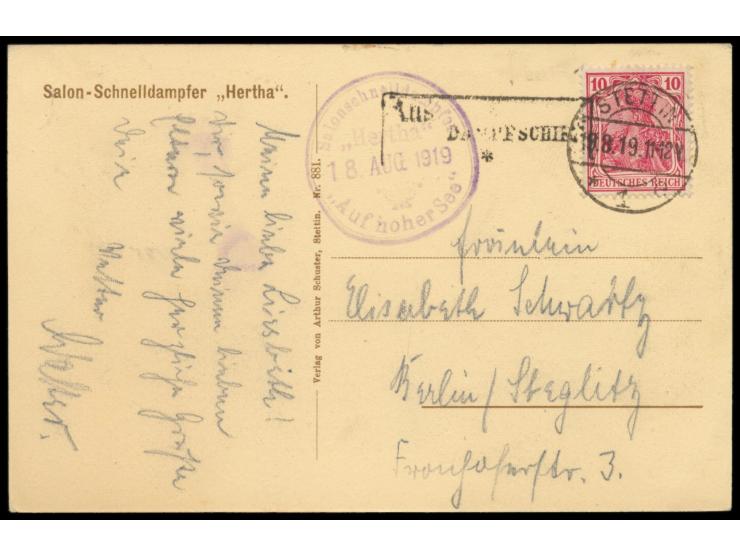 Salon-Schnelldampfer „Hertha".
Salonschnelldampfer
„Hertha"
18. AUG 1919
„Auf hoher See"
Aus
DAMPFSCHIF
*
STETTIN
.8.19.11-12V
* 1
10 10
DEUTSCHES REICH
Verlag von Arthur Schuster, Stettin. Nr. 881.
Meine liebe Liesbeth!
Dir, sowie Deinen lieben
Eltern viele herzliche Grüße
Dein Vetter
Walter.
Fräulein
Elisabeth Schwartz
Berlin/Steglitz
Fronhoferstr. 3.